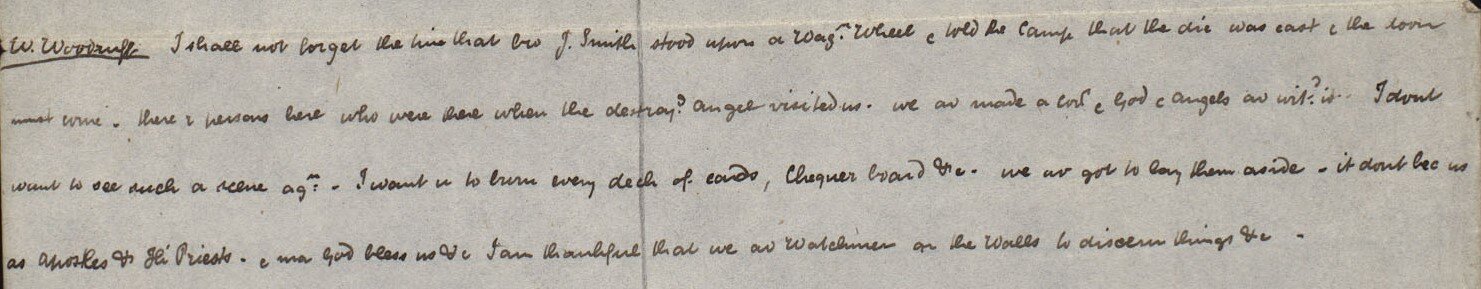 W. Woodruff I shall not forget the time that bro J. Smith stood upon a Wagn. Wheel & told the Camp that the die was cast & the doom
must come. there r persons here who were there when the destroyg. angel visited us. we av made a covt. & God & angels av witd. it. I dont
want to see such a scene agn. - I want u to burn every deck of cards, Chequer board &c. we av got to lay them aside - it dont bec us
as apostles & Hi Priests. & ma God bless us &c I am thankful that we av Watchmen on the Walls to discern things &c -